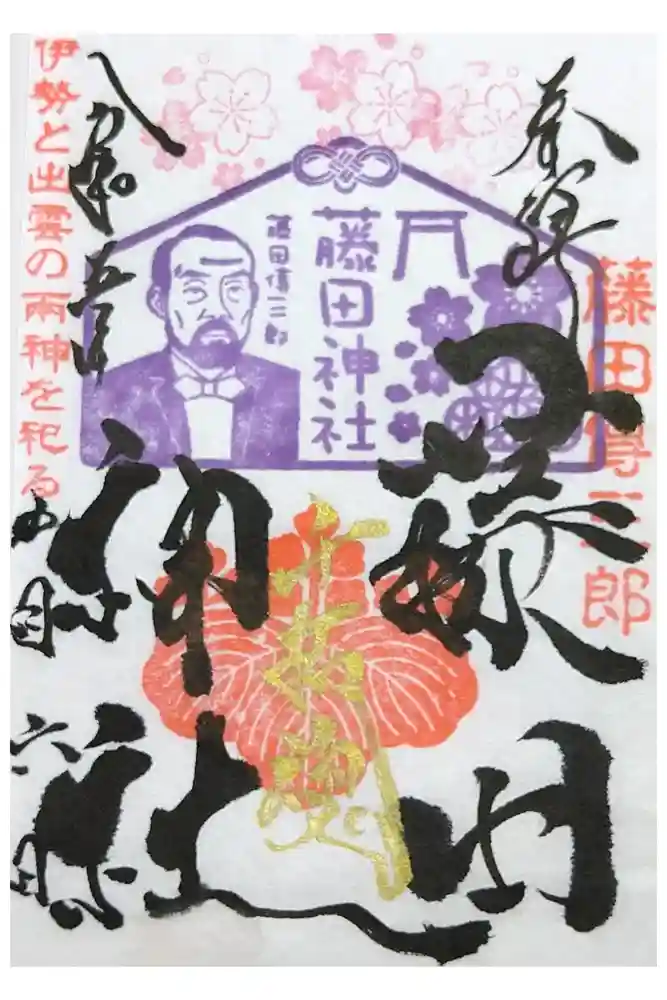 奉拝
藤田傳三郎
藤田
神社
藤田神社
藤田傳三郎
令和五年
四月
六日
伊勢と出雲の両神を祀る